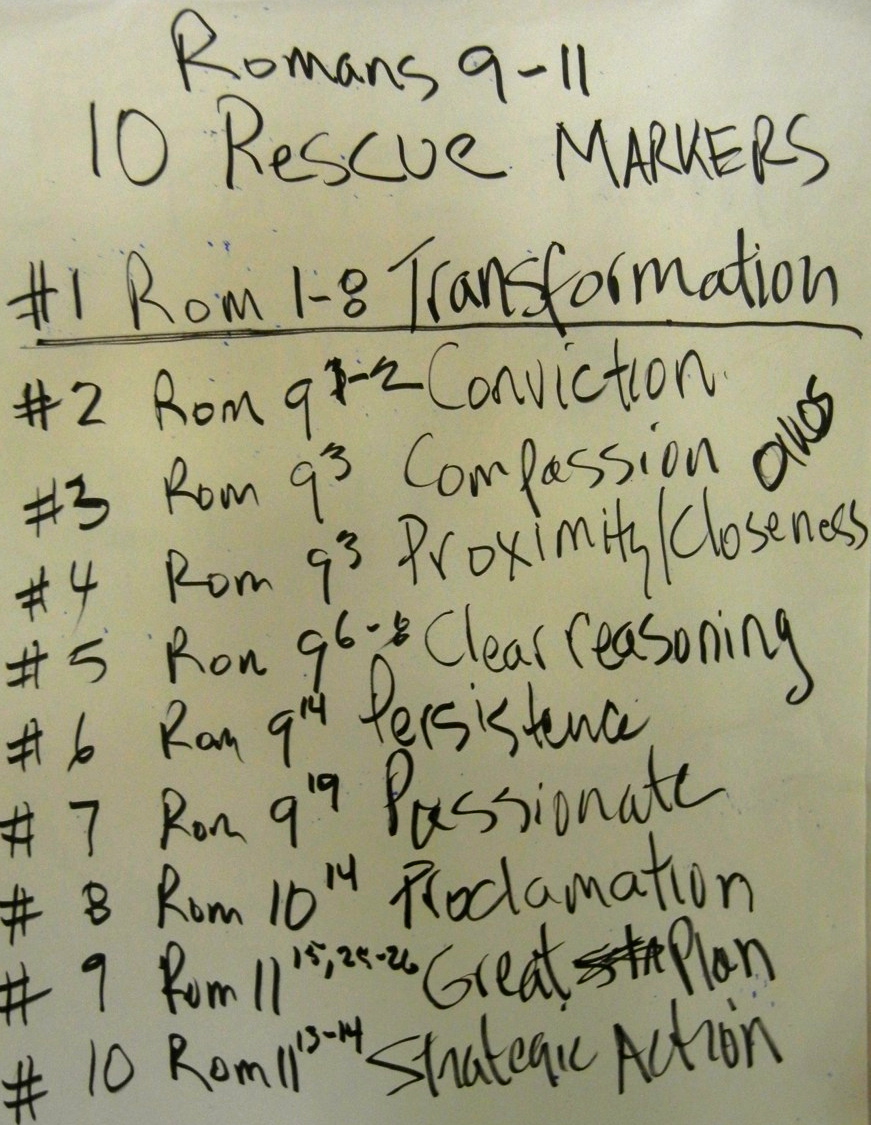 Romans 9-11
10 Rescue MARKERS
#1 Rom 1-8 Transformation
#2 Rom 9 1-2 Conviction
#3 Rom 9 3 Compassion
#4 Rom 9 3 Proximity/Closeness
#5 Rom 9 6-8 Clear reasoning
#6 Rom 9 14 Persistence
#7 Rom 9 19 Passionate
#8 Rom 10 14 Proclamation
#9 Rom 11 15, 25-26 Great Plan
#10 Rom 11 13-14 Strategic Action